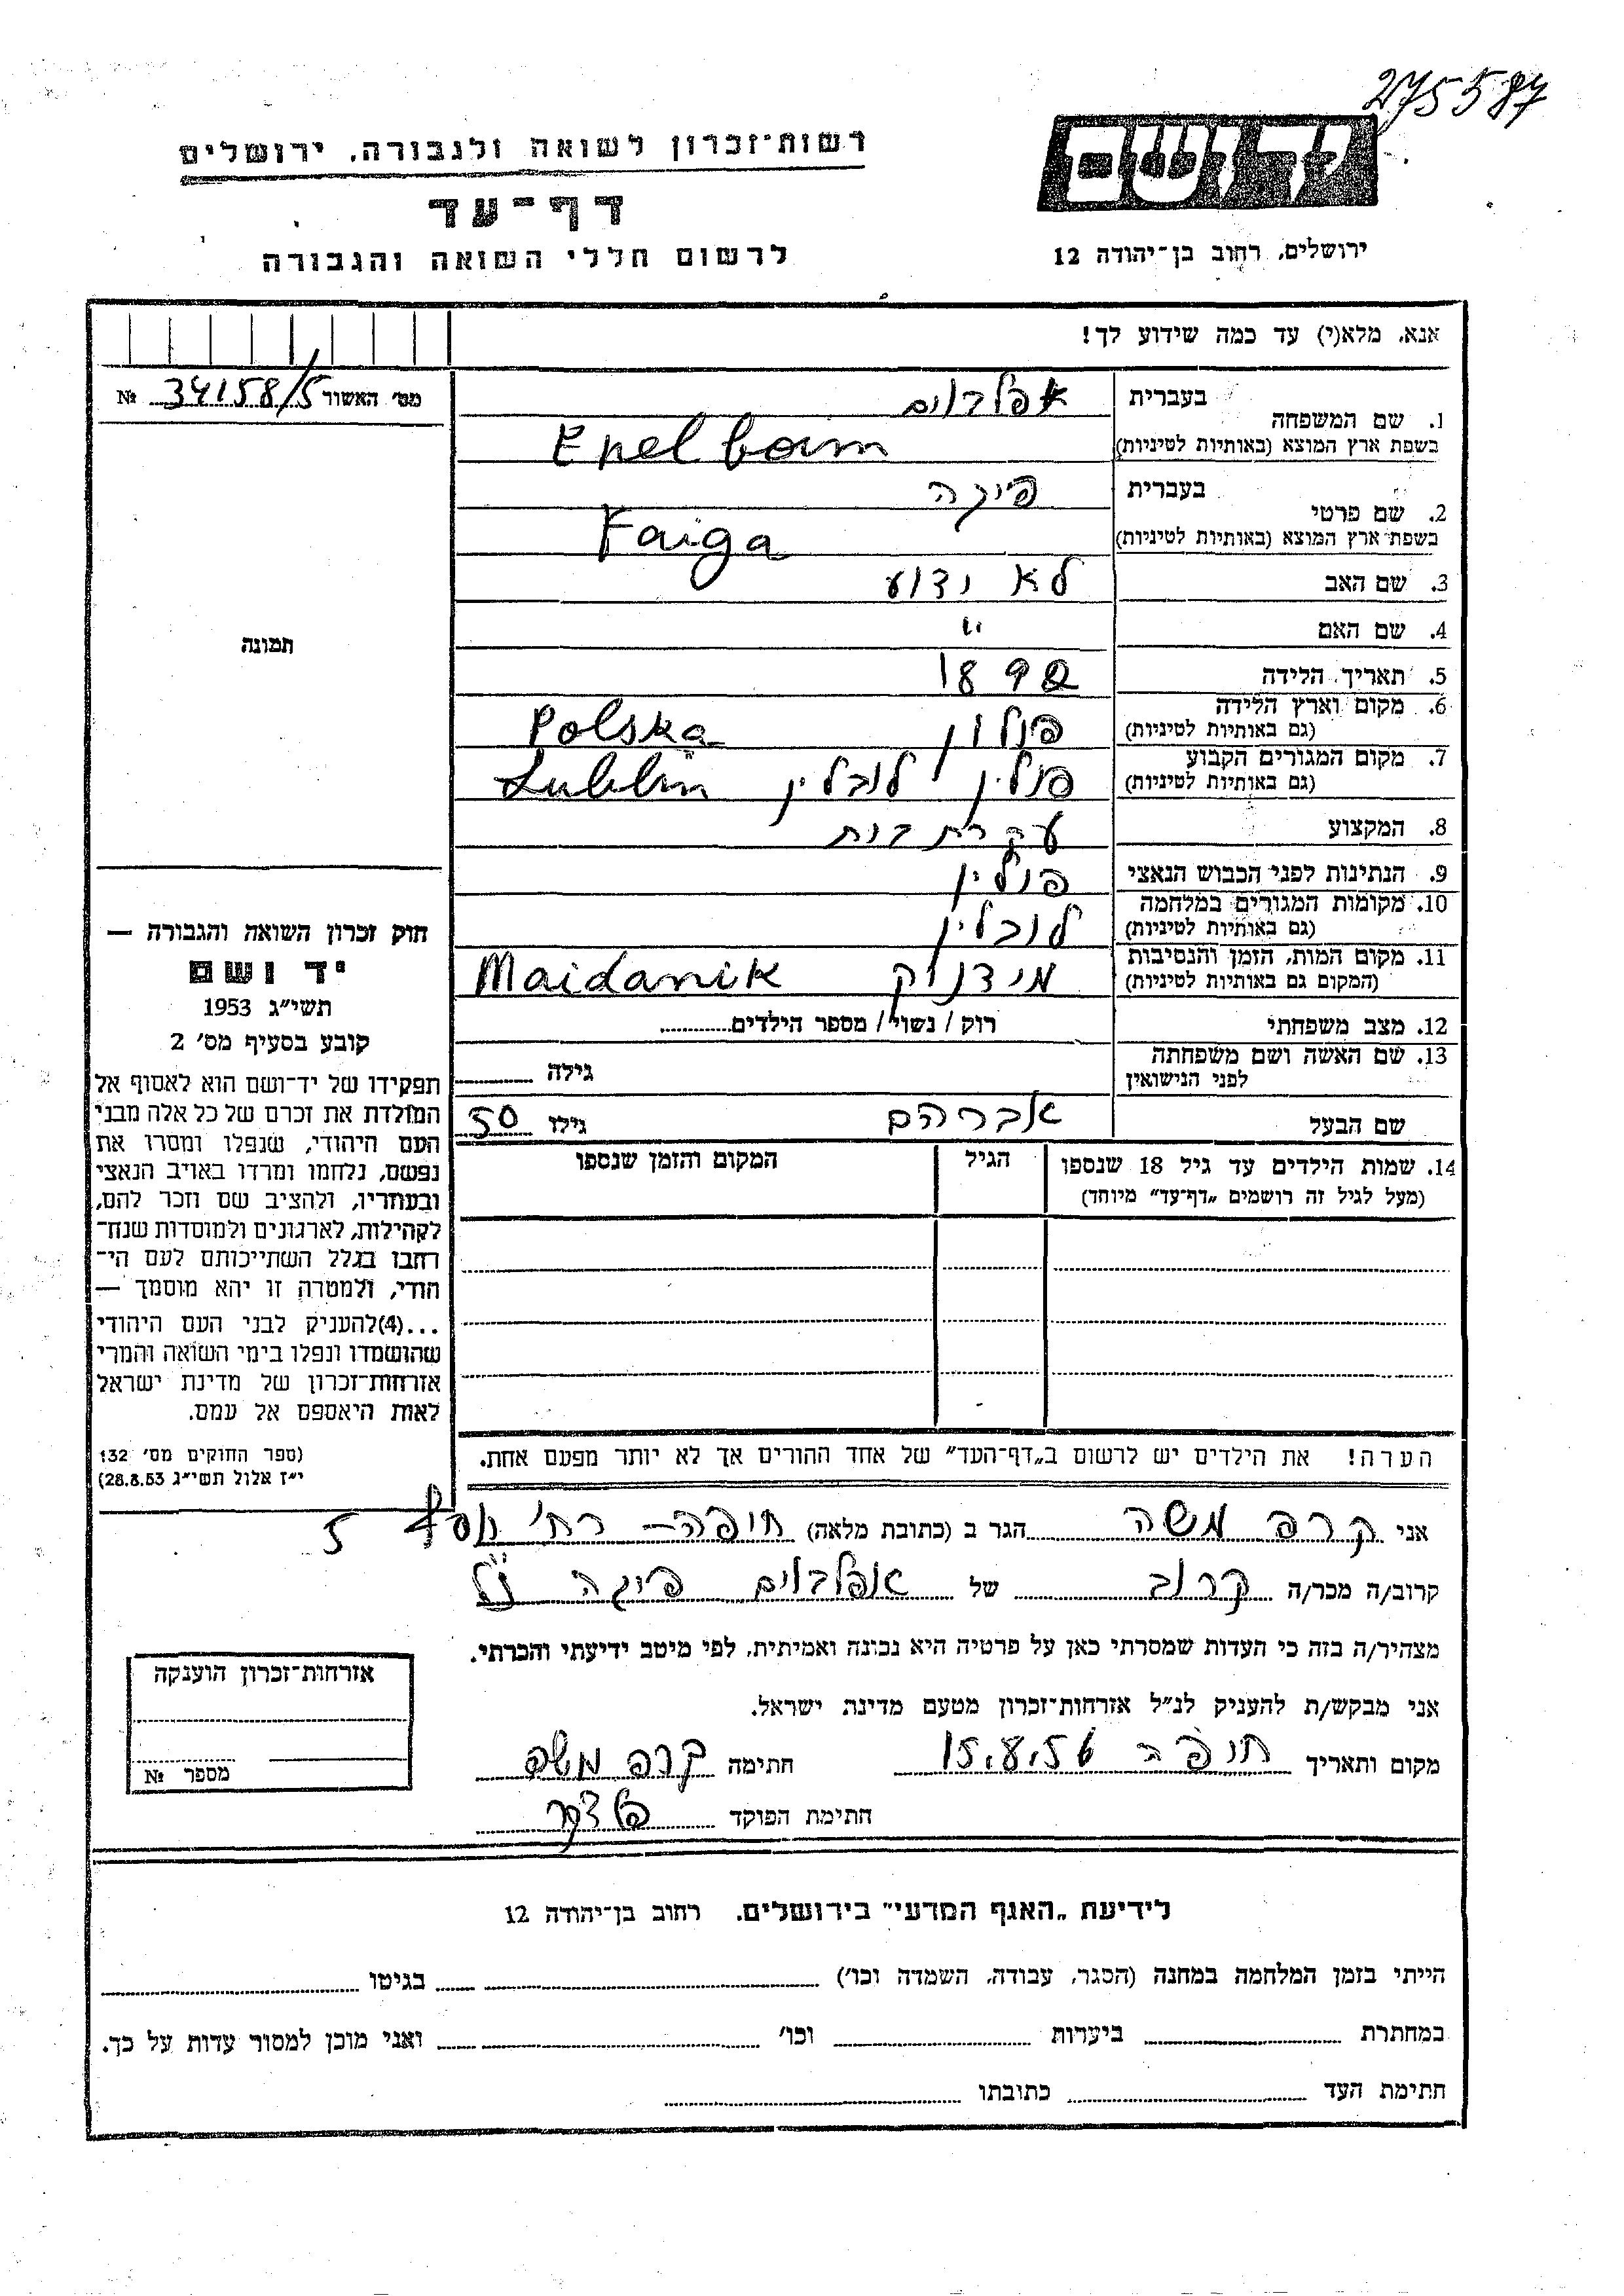 275587
רשות־זכרון לשואה ולגבורה, ירושלים
יד ושם
דף־עד
לרשום חללי השואה והגבורה
ירושלים, רחוב בן־יהודה 12
אנא, מלא(י) עד כמה שידוע לך!
מס׳ האשור 34158/5 №
1. שם המשפחה
בעברית אפלבוים
בשפת ארץ המוצא (באותיות לטיניות) Epelboim
2. שם פרטי
בעברית פיגה
בשפת ארץ המוצא (באותיות לטיניות) Faiga
3. שם האב לא ידוע
4. שם האם "
5. תאריך הלידה 1892
6. מקום וארץ הלידה
(גם באותיות לטיניות) פולין Polska
7. מקום המגורים הקבוע
(גם באותיות לטיניות) פולין לובלין Lublin
8. המקצוע עקרת בית
9. הנתינות לפני הכבוש הנאצי פולין
10. מקומות המגורים במלחמה
(גם באותיות לטיניות) לובלין
11. מקום המות, הזמן והנסיבות
(המקום גם באותיות לטיניות) מידנק Maidanik
12. מצב משפחתי רוק / נשוי / מספר הילדים
13. שם האשה ושם משפחתה
לפני הנישואין גילה
שם הבעל אברהם גילו 50
14. שמות הילדים עד גיל 18 שנספו הגיל המקום והזמן שנספו
(מעל לגיל זה רושמים „דף־עד” מיוחד)
הערה! את הילדים יש לרשום ב„דף־העד” של אחד ההורים אך לא יותר מפעם אחת.
תמונה
חוק זכרון השואה והגבורה —
יד ושם
תשי״ג 1953
קובע בסעיף מס׳ 2
תפקידו של יד־ושם הוא לאסוף אל
המולדת את זכרם של כל אלה מבני
העם היהודי, שנפלו ומסרו את
נפשם, נלחמו ומרדו באויב הנאצי
ובעוזריו, ולהציב שם וזכר להם,
לקהילות, לארגונים ולמוסדות שנח־
רחבו בגלל השתייכותם לעם הי־
הודי, ולמטרה זו יהא מוסמך —
...(4)להעניק לבני העם היהודי
שהושמדו ונפלו בימי השואה והמרי
אזרחות־זכרון של מדינת ישראל
לאות היאספם אל עמם.
(ספר החוקים מס׳ 132
י״ז אלול תשי״ג 28.8.53)
אני קרפ משה הגר ב (כתובת מלאה) חיפה – רח׳ 5
קרוב/ה מכר/ה קרוב של אפלבוים פיגה ז״ל
מצהיר/ה בזה כי העדות שמסרתי כאן על פרטיה היא נכונה ואמיתית, לפי מיטב ידיעתי והכרתי.
אני מבקש/ת להעניק לנ״ל אזרחות־זכרון מטעם מדינת ישראל.
מקום ותאריך חיפה 15.8.56 חתימה קרפ משה
חתימת הפוקד
אזרחות־זכרון הוענקה
מספר №
לידיעת „האגף המדעי” בירושלים, רחוב בן־יהודה 12
הייתי בזמן המלחמה במחנה (הסגר, עבודה, השמדה וכו׳) בגיטו
במחתרת ביערות וכו׳ ואני מוכן למסור עדות על כך.
חתימת העד כתובתו